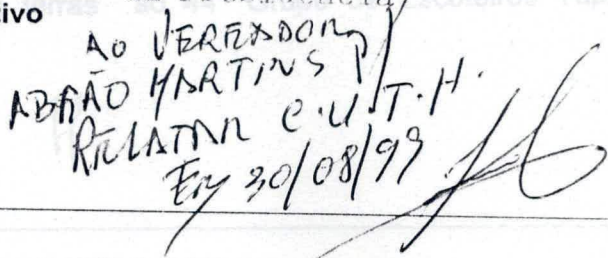 tivo
AO VEREADOR
ABRÃO MARTINS P/
RELATAR C.U.T.H.
Em 30/08/99